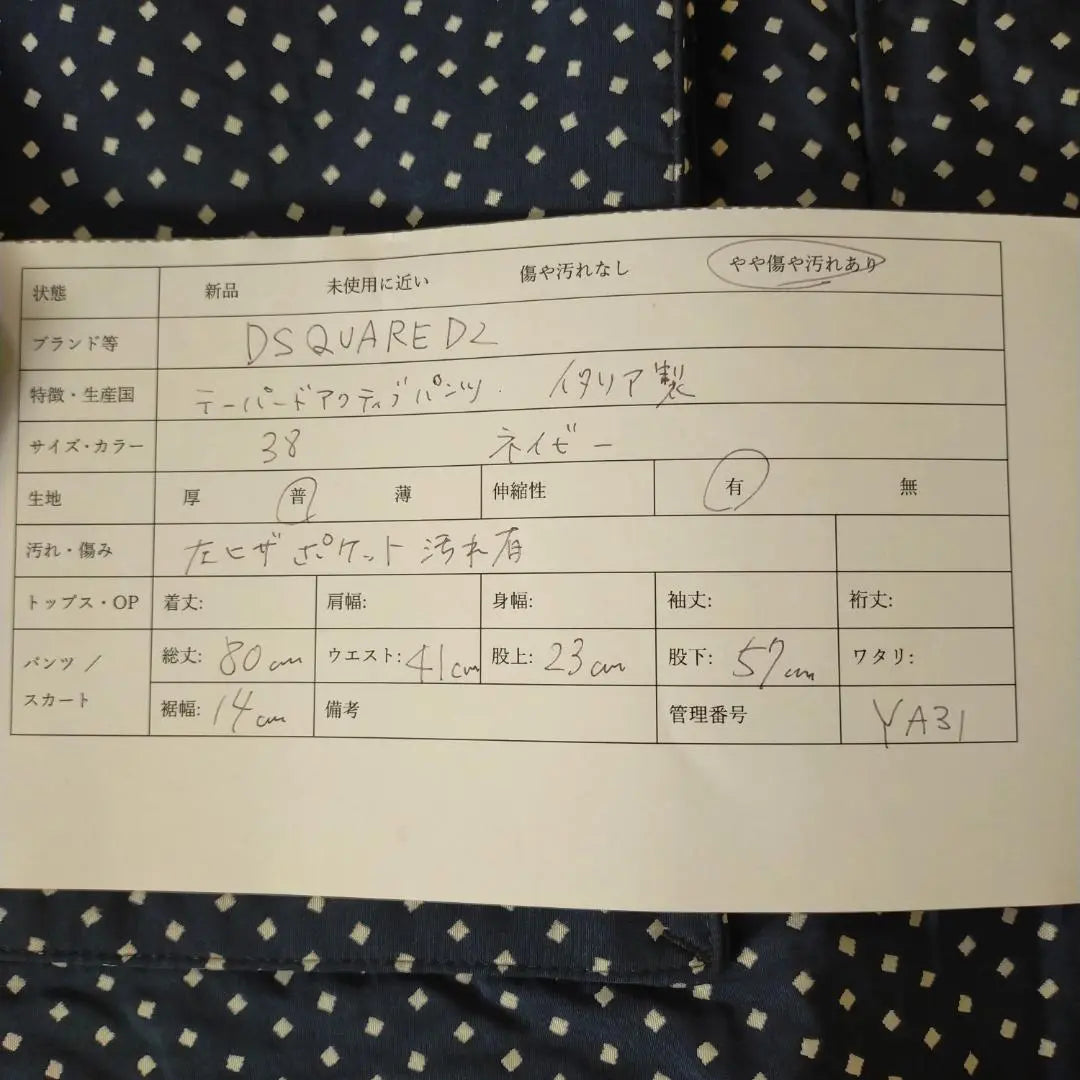 状態 新品 未使用に近い 傷や汚れなし やや傷や汚れあり
ブランド等 DSQUARED2
特徴・生産国 テーパードアクティブパンツ. イタリア製
サイズ・カラー 38 ネイビー
生地 厚 普 薄 伸縮性 有 無
汚れ・傷み 左ヒザポケット汚れ有
トップス・OP 着丈: 肩幅: 身幅: 袖丈: 裄丈:
パンツ / スカート 総丈: 80cm ウエスト: 41cm 股上: 23cm 股下: 57cm ワタリ:
裾幅: 14cm 備考 管理番号 YA31